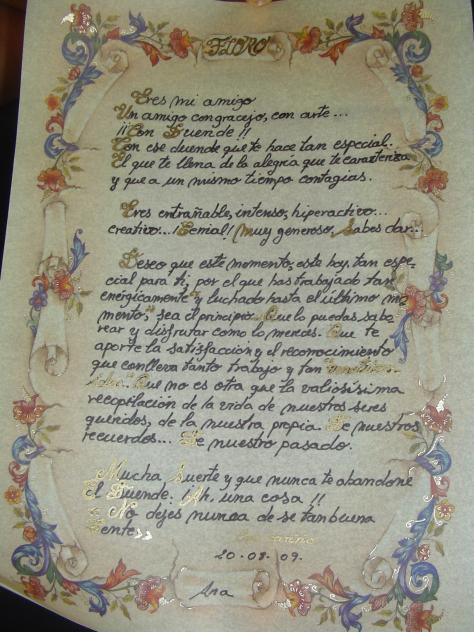 FLORO
Eres mi amigo
Un amigo con gracejo, con arte...
¡¡Con Duende!!
Con ese duende que te hace tan especial.
El que te llena de la alegría que te caracteriza
y que a un mismo tiempo contagias.
Eres entrañable, intenso, hiperactivo...
creativo...¡Genial! Muy generoso, Sabes dar...
Deseo que este momento, este hoy, tan espe-
cial para ti, por el que has trabajado tan
enérgicamente y luchado hasta el último mo-
mento, sea el principio. Que lo puedas sabo
rear y disfrutar como lo mereces. Que te
aporte la satisfacción y el reconocimiento
que conlleva tanto trabajo y tan
Que no es otra que la valiosísima
recopilación de la vida de nuestros seres
queridos, de la nuestra propia. De nuestros
recuerdos... De nuestro pasado.
Mucha Suerte y que nunca te abandone
el Duende. Ah, una cosa!!
No dejes nunca de ser tan buena
Gente
Con cariño
20.08.09.
Ana